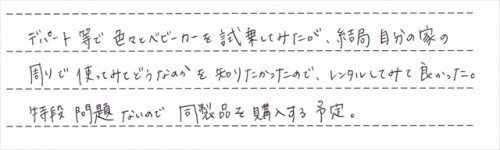 デパート等で色々とベビーカーを試乗してみたが、結局自分の家の
周りで使ってみてどうなのかを知りたかったので、レンタルしてみて良かった。
特段問題ないので同製品を購入する予定。